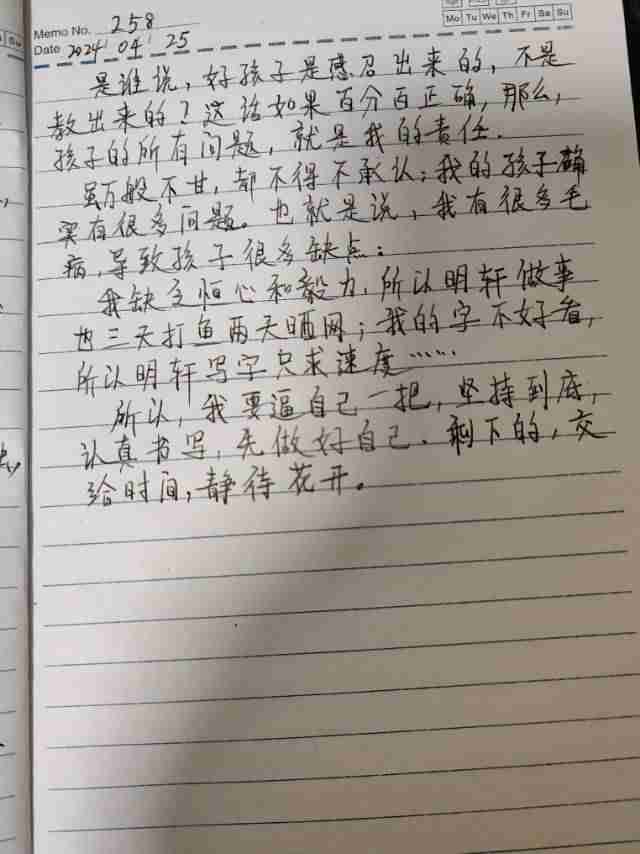 Memo No. 258
Mo Tu We Th Fr Sa Su
Date 2024 04 25
是谁说，好孩子是感召出来的，不是
教出来的？这话如果百分百正确，那么，
孩子的所有问题，就是我的责任.
虽万般不甘，却不得不承认：我的孩子确
实有很多问题。也就是说，我有很多毛
病，导致孩子很多缺点：
我缺乏恒心和毅力，所以明轩做事
也三天打鱼两天晒网；我的字不好看，
所以明轩写字只求速度……
所以，我要逼自己一把，坚持到底，
认真书写，先做好自己．剩下的，交
给时间，静待花开。